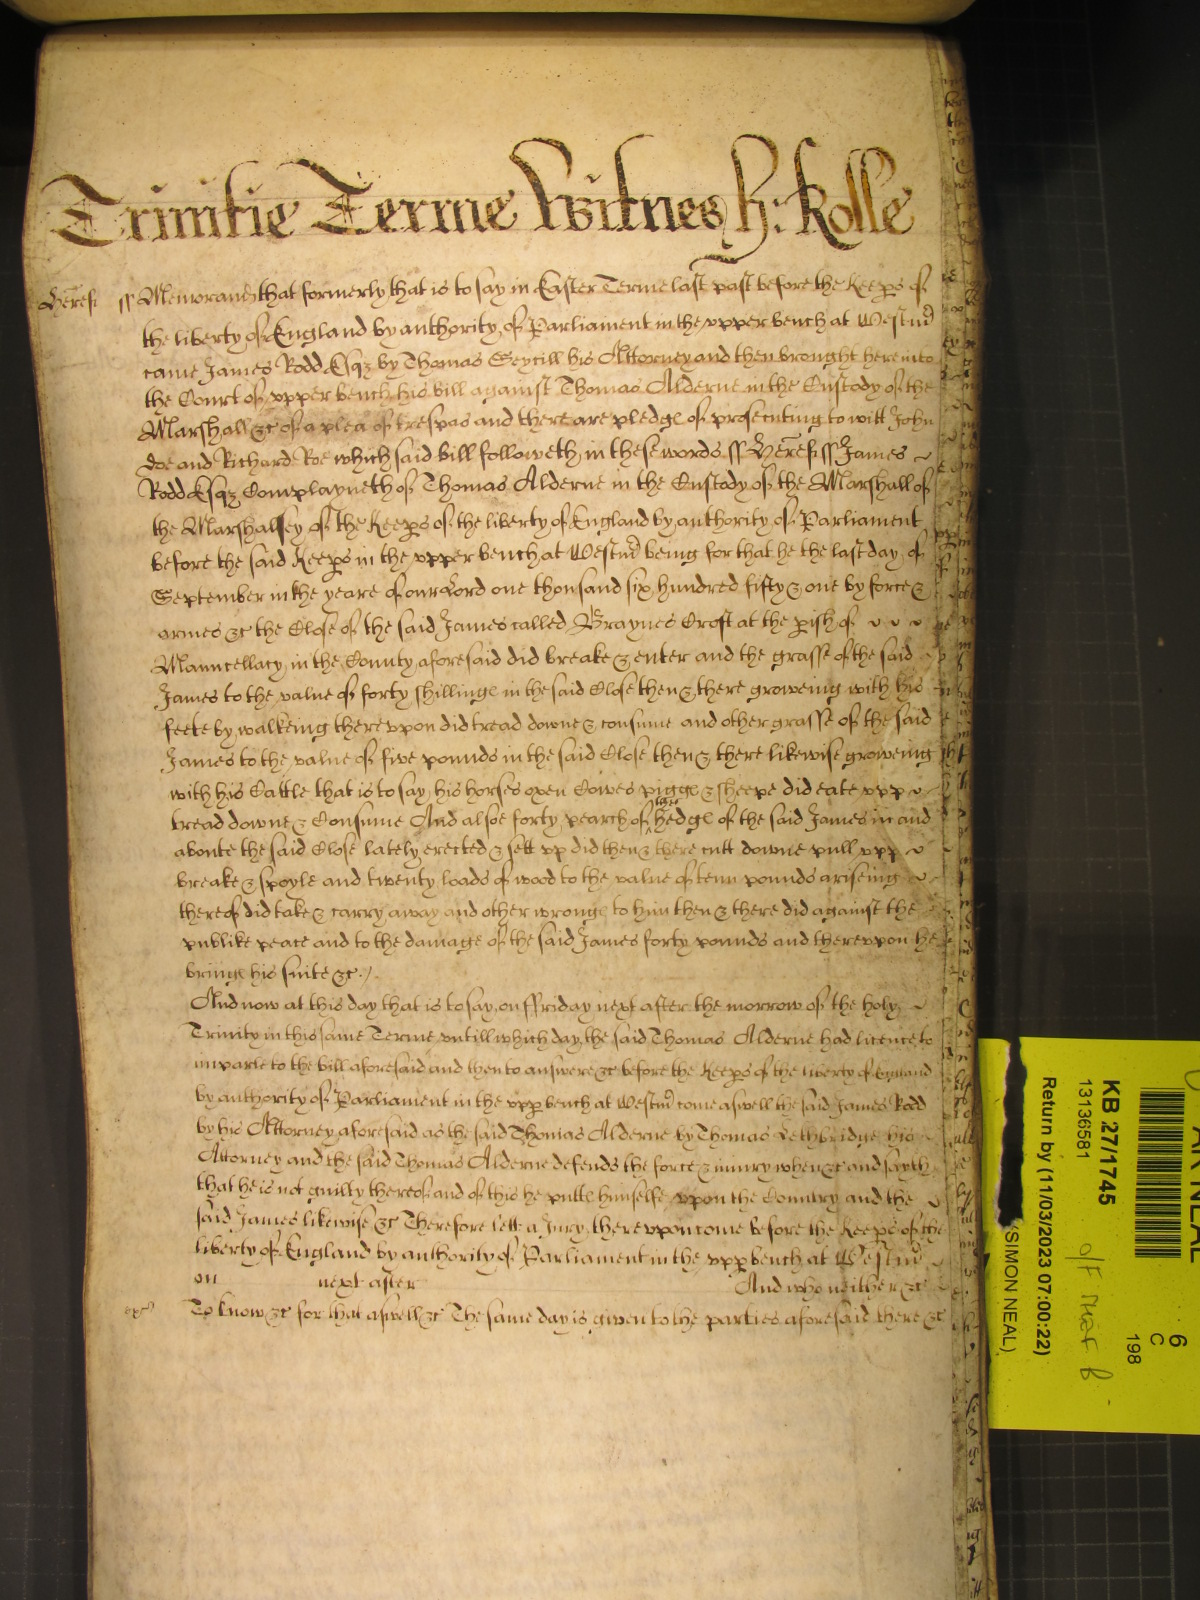 Trinitie Terme Witnes H: Rolle
Herefs ss Memorand that formerly that is to say in Easter Terme last past before the Keeps of
the liberty of England by authority of Parliament in the upper bench at Westm
came James Rodd Esqz by Thomas Seycill his Attorney and then brought here into
the Court of upper bench his bill against Thomas Alderne in the Custody of the
Marshall &c of a plea of trespas and there are pledge of prosecuting to witt John
Doe and Richard Roe which said bill followeth in these words ss Herefs ss James
Rodd Esqz Complayneth of Thomas Alderne in the Custody of the Marshall of
the Marshalsey of the Keeps of the liberty of England by authority of Parliament
before the said Keeps in the upper bench at Westm being for that he the last day of
September in the yeare of our Lord one thousand six hundred fifty & one by force &
armes &c the Close of the said James called Braynes Croft at the pish of
Mauncellacy in the County aforesaid did breake & enter and the grasse of the said
James to the value of forty shillinge in the said Close then & there groweing with his
feete by walkeing thereupon did tread downe & consume and other grasse of the said
James to the value of five pounds in the said Close then & there likewise groweing
with his Cattle that is to say his horses oxen Cowes pigge & sheepe did eate upp
tread downe & Consume And alsoe forty pearch of hedge of the said James in and
aboute the said Close lately erected & sett up did then & there cutt downe pull upp
breake & spoyle and twenty loads of wood to the value of tenn pounds ariseing
thereof did take & carry away and other wronge to him then & there did against the
publike peace and to the damage of the said James forty pounds and thereupon he
bringe his suite &c
And now at this day that is to say on ffriday next after the morrow of the holy
Trinity in this same Terme untill which day the said Thomas Alderne had licence to
imparle to the bill aforesaid and then to answere &c before the Keeps of the liberty of England
by authority of Parliament in the upp bench at Westm come aswell the said James Rodd
by his Attorney aforesaid as the said Thomas Alderne by Thomas Lethbridge his
Attorney and the said Thomas Alderne defends the force & iniury when &c and sayth
that he is not guilty thereof and of this he putte himselfe upon the Country and the
said James likewise &c Therefore lett a Jury thereupon come before the Keeps of the
liberty of England by authority of Parliament in the upp bench at Westm
on next after And who neither &c
To know &c for that aswell &c The same day is given to the parties aforesaid there &c
KB 27/1745
13136581
Return by (11/03/2023 07:00:22)
(SIMON NEAL)
6
C
198